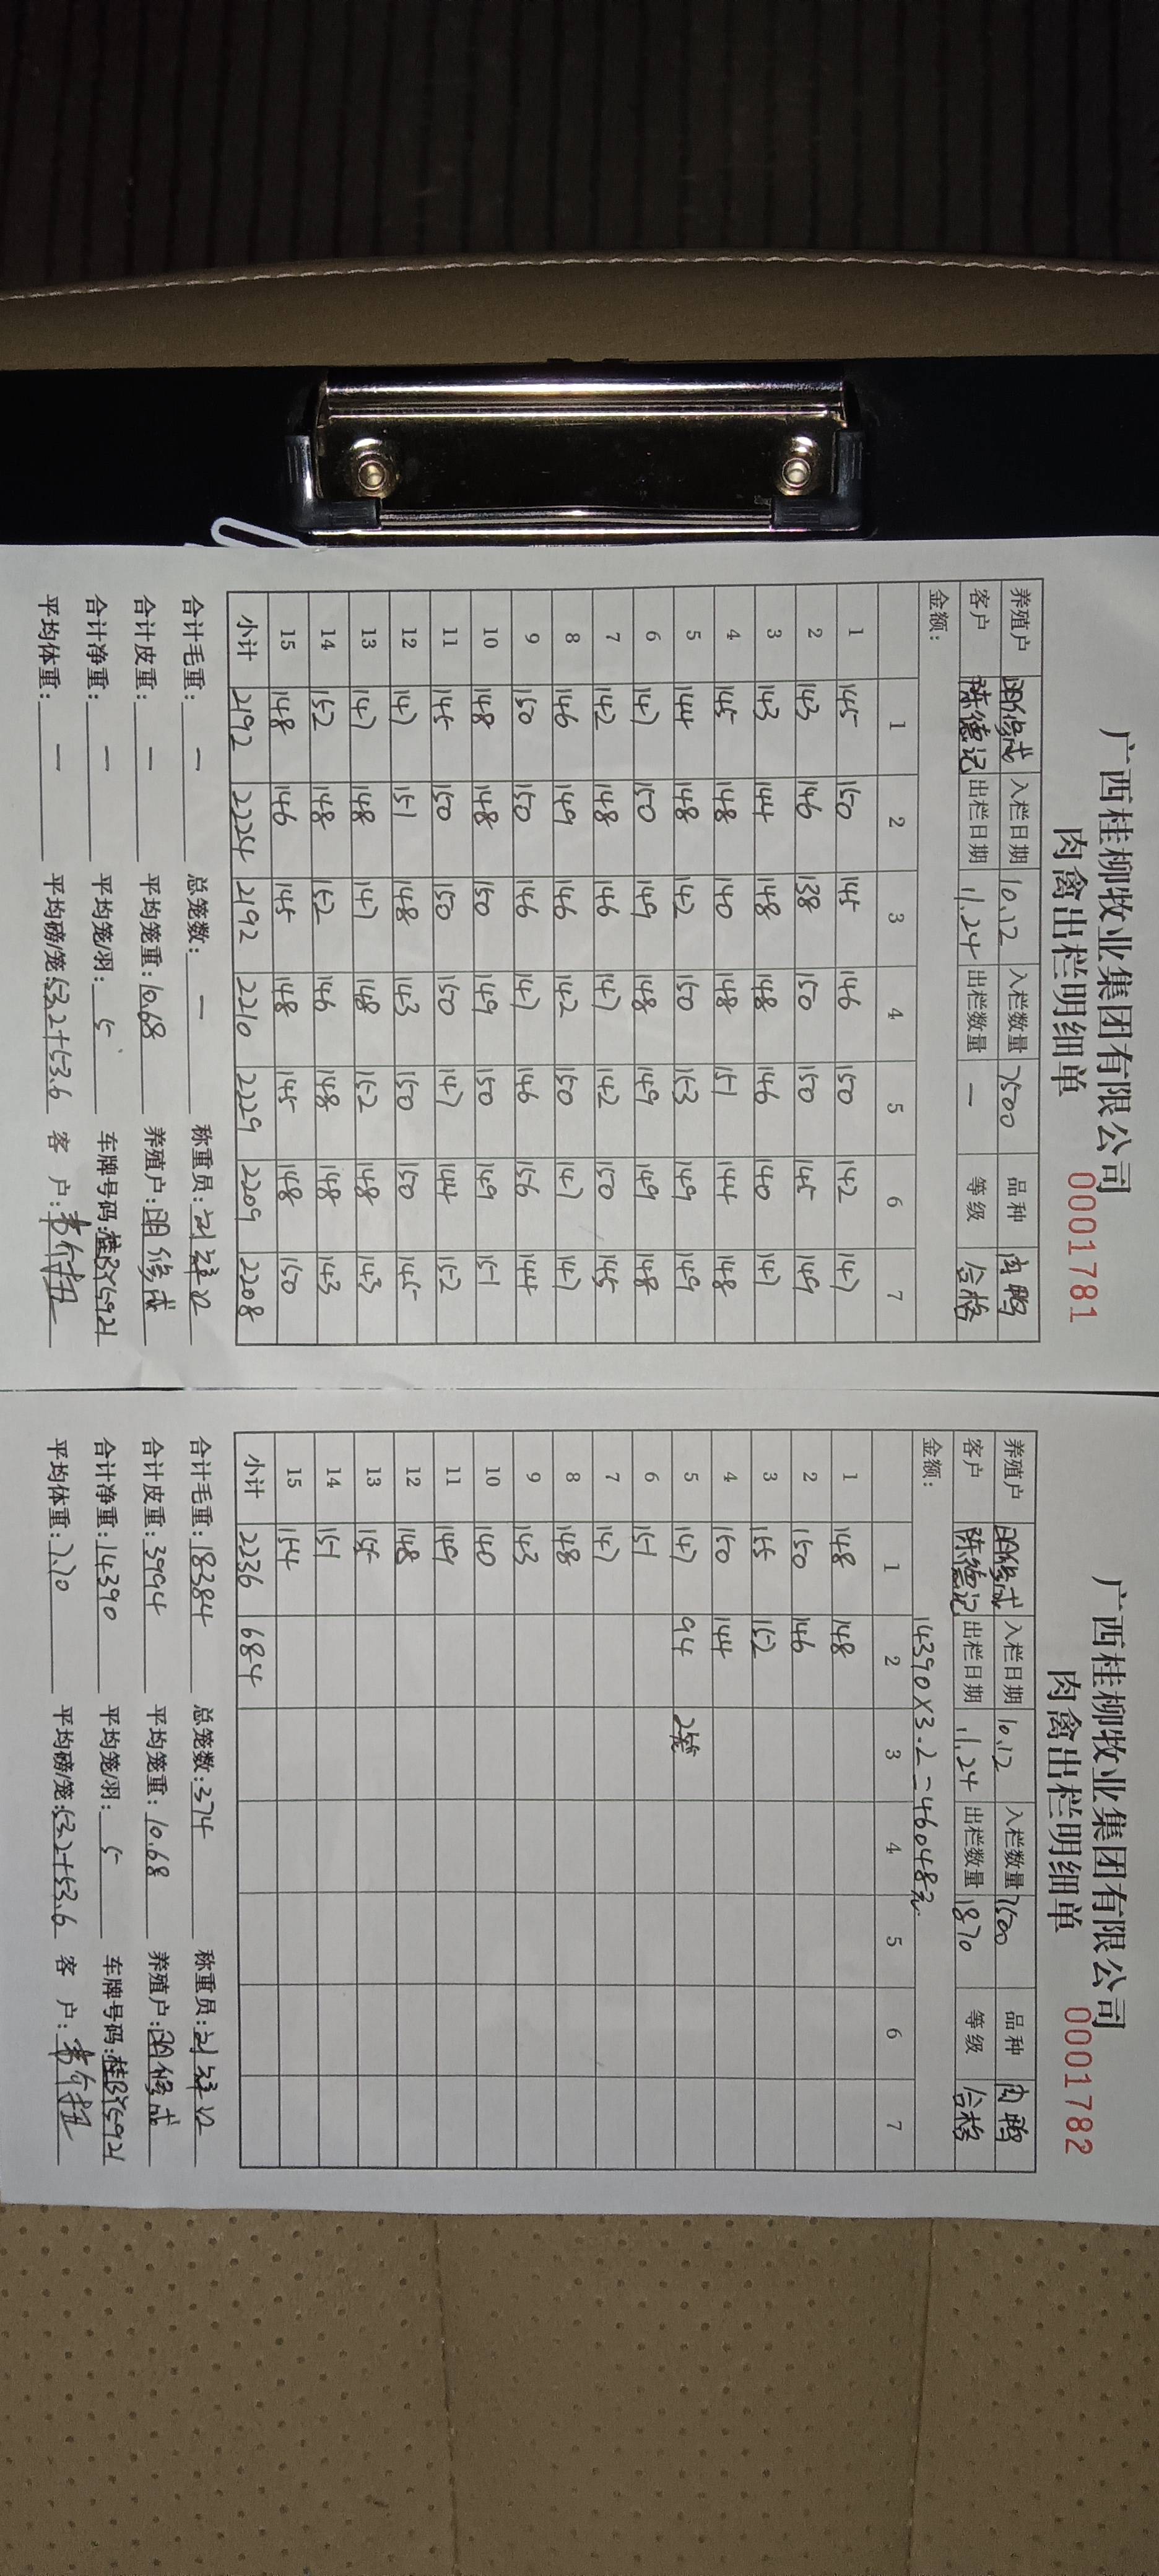 广西桂柳牧业集团有限公司
肉禽出栏明细单 0001781
养殖户 入栏日期 10.12 入栏数量 7500 品种 肉鸭
客户 陈德记 出栏日期 11.24 出栏数量 — 等级 合格
金额:
1 2 3 4 5 6 7
1 145 150 145 146 150 142 147
2 143 146 138 150 150 145 149
3 143 144 148 148 146 140 147
4 145 148 140 148 151 144 148
5 144 148 142 150 153 149 149
6 147 150 149 148 149 149 148
7 142 148 146 147 142 150 145
8 146 149 146 142 150 147 147
9 150 150 146 147 146 156 144
10 148 148 150 149 150 149 151
11 145 150 150 150 147 144 152
12 147 151 148 143 150 150 145
13 147 148 147 148 152 148 143
14 152 148 152 146 148 148 143
15 148 146 145 148 145 148 150
小计 2192 2254 2192 2210 2229 2209 2208
合计毛重: — 总笼数: — 称重员:
合计皮重: — 平均笼重: 10.68 养殖户: 修成
合计净重: — 平均笼/羽: 5 车牌号码: 桂BY5921
平均体重: — 平均磅/笼: 53.2+53.6 客 户:
广西桂柳牧业集团有限公司
肉禽出栏明细单 0001782
养殖户 入栏日期 10.12 入栏数量 7500 品种 肉鸭
客户 陈德记 出栏日期 11.24 出栏数量 1870 等级 合格
金额: 14390×3.2=46048元.
1 2 3 4 5 6 7
1 148 148
2 150 146
3 155 152
4 150 144
5 147 94 2笼
6 151
7 147
8 148
9 143
10 140
11 149
12 148
13 155
14 151
15 154
小计 2236 684
合计毛重: 18384 总笼数: 374 称重员:
合计皮重: 3994 平均笼重: 10.68 养殖户: 修成
合计净重: 14390 平均笼/羽: 5 车牌号码: 桂BY5921
平均体重: 7.70 平均磅/笼: 53.2+53.6 客 户: